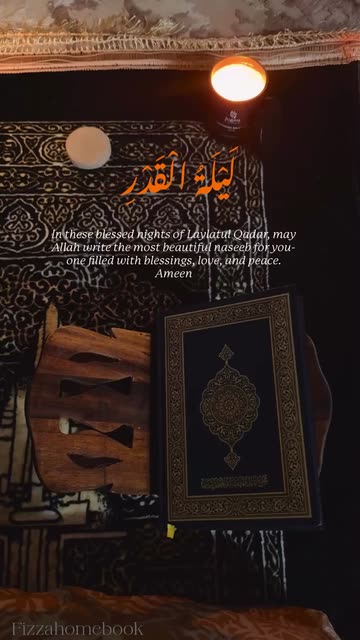 لَيْلَةُ الْقَدْرِ
In these blessed nights of Laylatul Qadar, may
Allah write the most beautiful naseeb for you-
one filled with blessings, love, and peace.
Ameen
Fizzahomebook